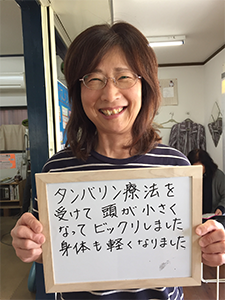 タンバリン療法を
受けて 頭が小さく
なって ビックリしました
身体も軽くなりました